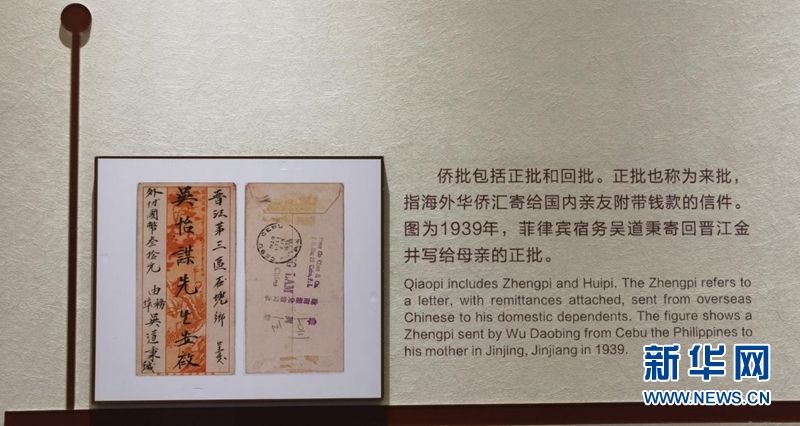 晋江第三區石兜鄉
吳怡謀先生安啟
外付國幣叁拾元
由務埠
吳道秉緘
CEBU
LAM
China
侨批包括正批和回批。正批也称为来批，
指海外华侨汇寄给国内亲友附带钱款的信件。
图为1939年，菲律宾宿务吴道秉寄回晋江金
井写给母亲的正批。
Qiaopi includes Zhengpi and Huipi. The Zhengpi refers to
a letter, with remittances attached, sent from overseas
Chinese to his domestic dependents. The figure shows a
Zhengpi sent by Wu Daobing from Cebu the Philippines to
his mother in Jinjing, Jinjiang in 1939.
新华网
WWW.NEWS.CN